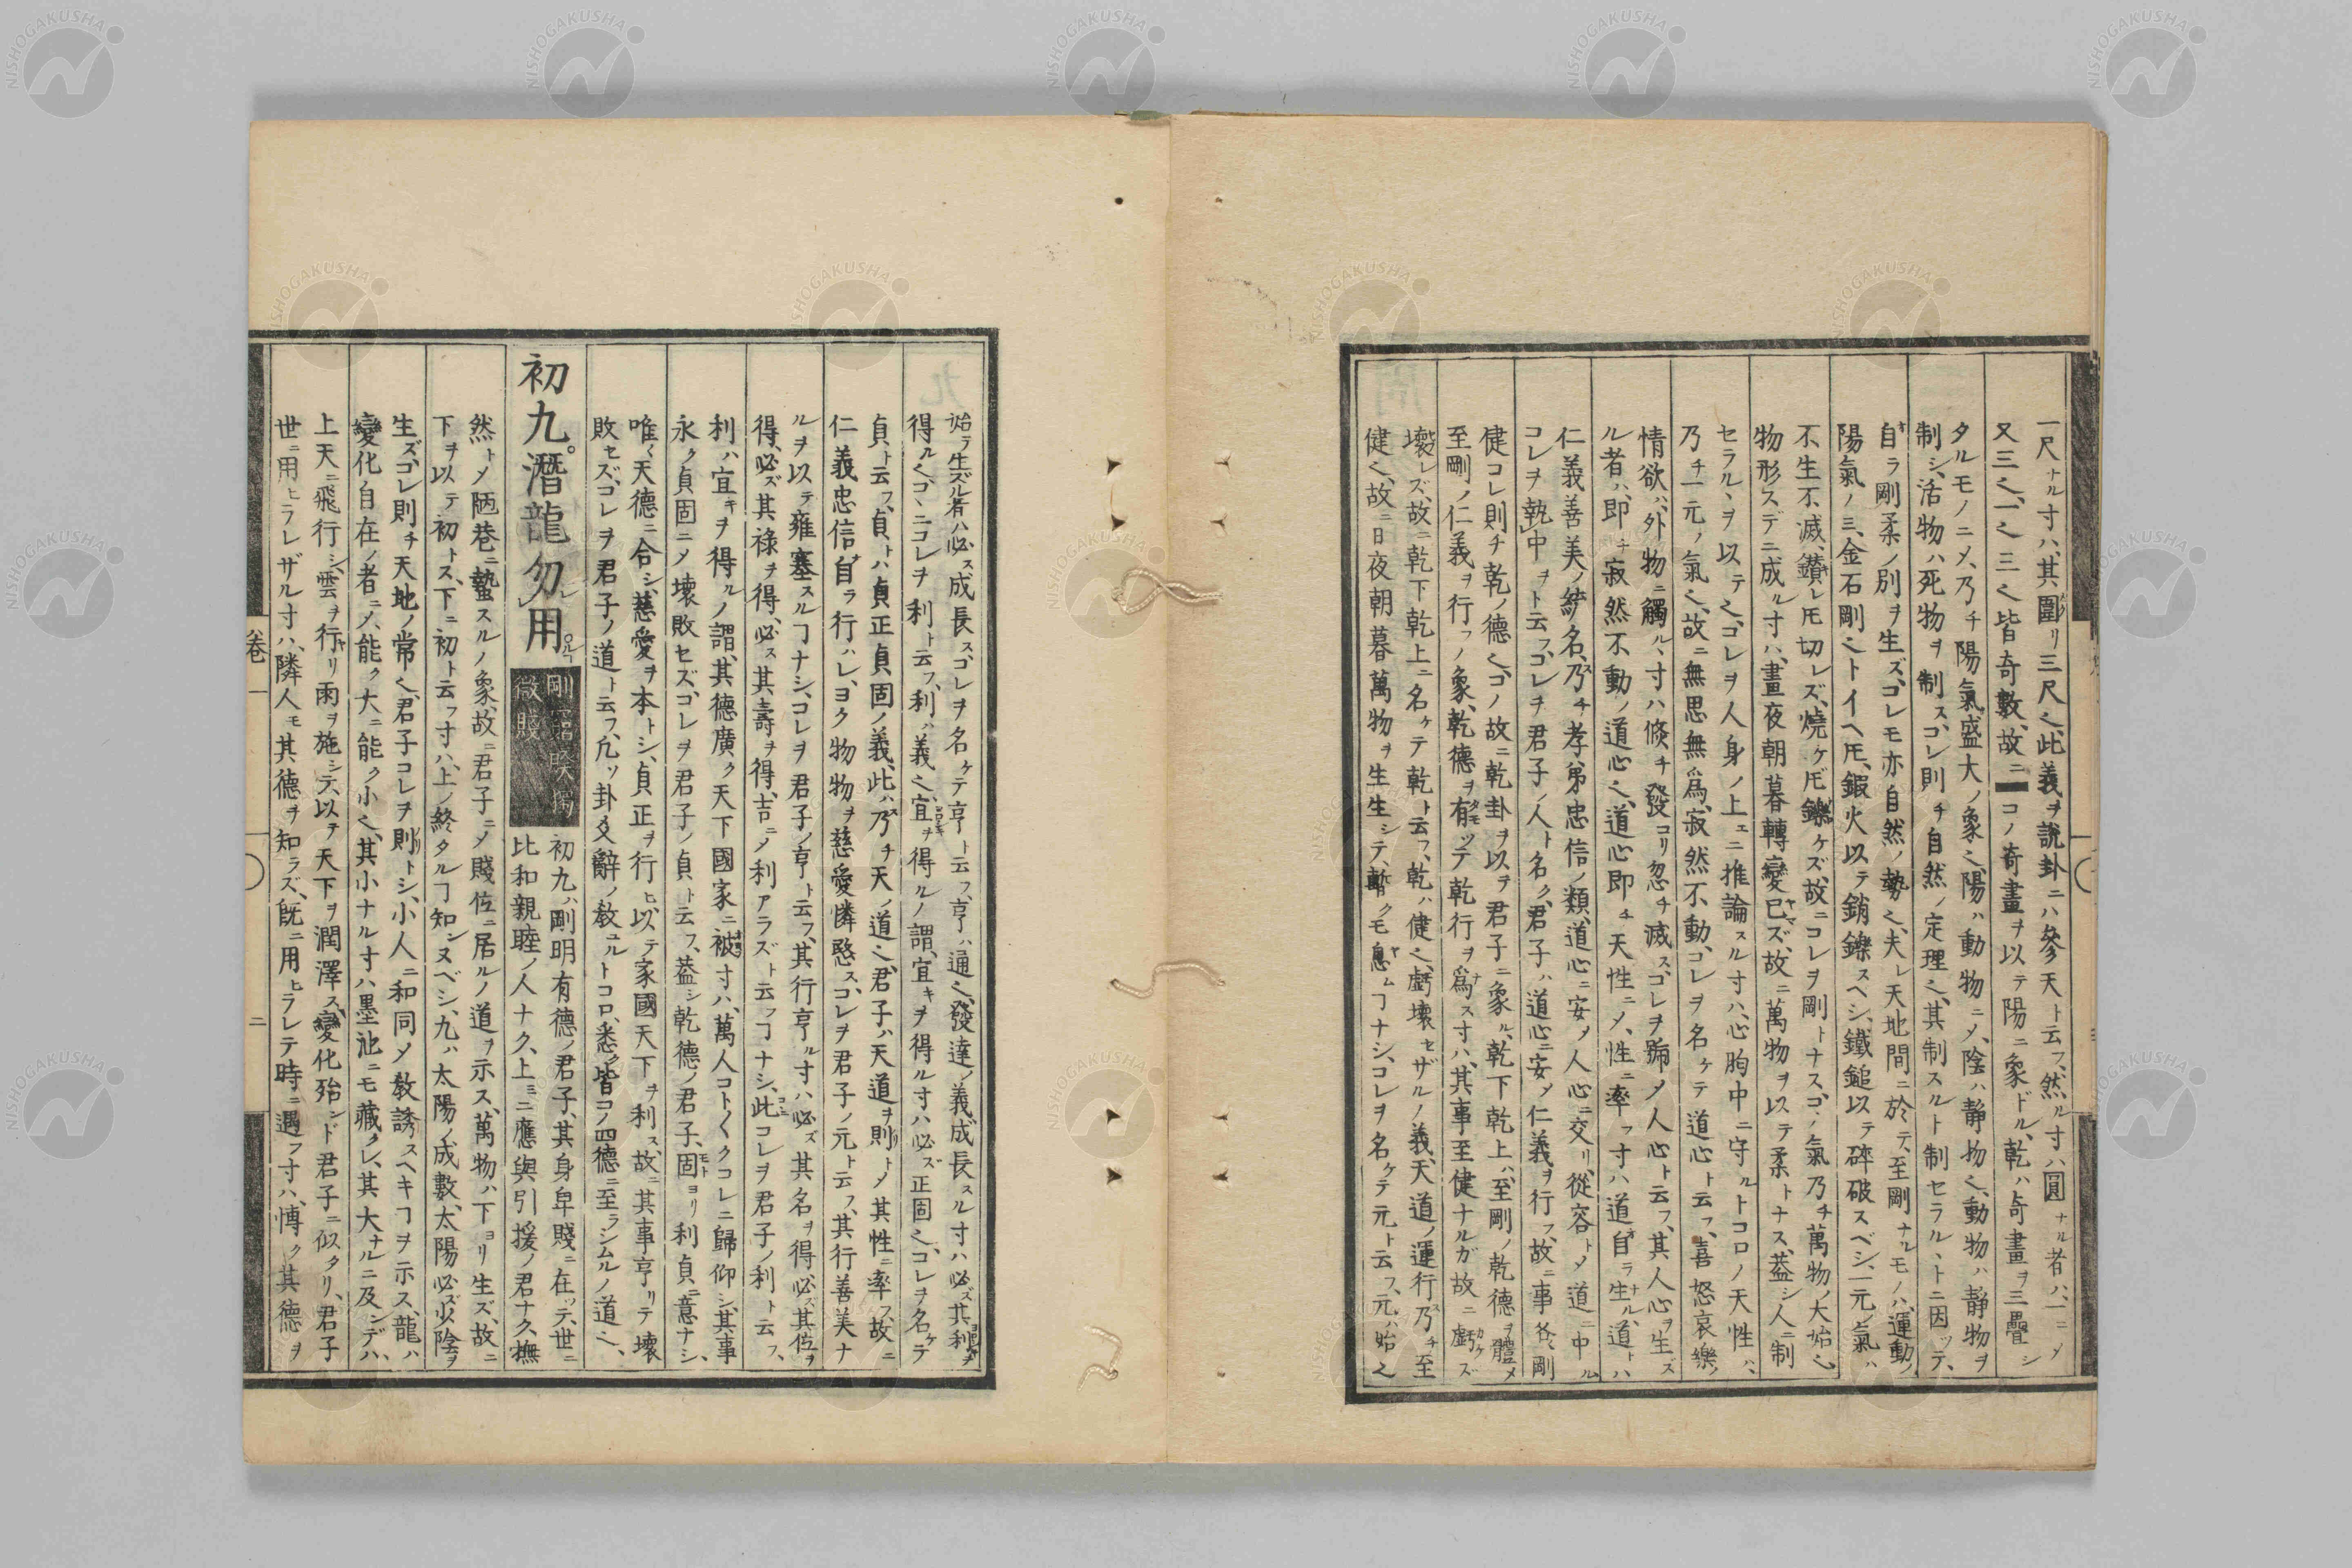 一尺ナル寸ハ、其圍リ三尺之、此義ヲ說卦ニハ參天ト云フ、然ル寸ハ圓ナル者ハ、一ニメ
又三之、一之三之皆奇數、故ニ━コノ奇畫ヲ以テ陽ニ象ドル、乾ハ奇畫ヲ三疊シ
タルモノニメ、乃チ陽氣盛大ノ象之、陽ハ動物ニメ、陰ハ靜物之、動物ハ靜物ヲ
制シ、活物ハ死物ヲ制ス、コレ則チ自然ノ定理之、其制スルト制セラルヽトニ因ッテ、
自ラ剛柔ノ別ヲ生ズ、コレモ亦自然ノ勢之、夫レ天地間ニ於テ、至剛ナルモノハ、運動ノ
陽氣ノ三、金石剛之トイヘ𪜈、鍛火以テ銷鑠スヘシ、鐵鎚以テ碎破スベシ、一元ノ氣ハ
不生不滅、鑚レ𪜈切レズ、燒ケ𪜈鑠ケズ、故ニコレヲ剛トナス、コノ氣乃チ萬物ノ大始之
物形スデニ成ル寸ハ、晝夜朝暮轉變已ズ、故ニ萬物ヲ以テ柔トナス、蓋シ人ニ制
セラルヽヲ以テ之、コレヲ人身ノ上ニ推論スル寸ハ、心胸中ニ守ルトコロノ天性ハ、
乃チ一元ノ氣之、故ニ無思無爲、寂然不動、コレヲ名ケテ道心ト云フ、喜怒哀樂ノ
情欲ハ、外物ニ觸ルヽ寸ハ倏チ發コリ忽チ滅ス、コレヲ號メ人心ト云フ、其人心ヲ生ズ
ル者ハ、即チ寂然不動ノ道心之、道心即チ天性ニメ、性ニ率フ寸ハ道自ラ生ル、道トハ
仁義善美ノ統名、乃チ孝弟忠信ノ類、道心ニ安メ人心ニ交リ、從容トメ道ニ中ル
コレヲ執中ヲト云フ、コレヲ君子ノ人ト名ク、君子ハ道心ニ安メ仁義ヲ行フ、故ニ事各剛
健コレ則チ乾ノ德之、コノ故ニ乾卦ヲ以テ君子ニ象ル、乾下乾上ハ、至剛ノ乾德ヲ體メ
至剛ノ仁義ヲ行フノ象、乾德ヲ有ッテ乾行ヲ爲ス寸ハ、其事至健ナルガ故ニ虧ズ
壞レズ、故ニ乾下乾上ニ名ケテ乾ト云フ、乾ハ健之、虧壞セザルノ義、天道ノ運行乃チ至
健之、故ニ日夜朝暮萬物ヲ生生シテ、暫クモ息ムヿナシ、コレヲ名ケテ元ト云フ、元ハ始之
始テ生ズル者ハ必ス成長ス、コレヲ名ケテ亨ト云フ、亨ハ通之、發達ノ義、成長スル寸ハ必ズ其利ヲ
得ル之、コヽニコレヲ利ト云フ、利ハ義之、宜ヲ得ルノ謂、宜キヲ得ル寸ハ必ズ正固之、コレヲ名ケテ
貞ト云フ、貞トハ貞正貞固ノ義、此ハ乃チ天ノ道之、君子ハ天道ヲ則トメ其性ニ率フ、故ニ
仁義忠信自ラ行ハレ、ヨク物物ヲ慈愛憐愍ス、コレヲ君子ノ元ト云フ、其行善美ナ
ルヲ以テ雍塞スルヿナシ、コレヲ君子ノ亨ト云フ、其行亨ル寸ハ必ズ其名ヲ得、必ズ其位ヲ
得、必ズ其祿ヲ得、必ス其壽ヲ得、吉ニメ利アラズト云フヿナシ、此コレヲ君子ノ利ト云フ、
利ハ宜キヲ得ルノ謂、其德廣ク天下國家ニ被寸ハ、萬人コト〱クコレニ歸仰シ、其事
永ク貞固ニメ壞敗セズ、コレヲ君子ノ貞ト云フ、蓋シ乾德ノ君子、固ヨリ利貞ニ意ナシ、
唯〻天德ニ合シ、慈愛ヲ本トシ、貞正ヲ行ヒ、以テ家國天下ヲ利ス、故ニ其事亨リテ壞
敗セズ、コレヲ君子ノ道ト云フ、凢ソ卦爻辭ノ敎ユルトコロ、悉ク皆コノ四德ニ至ラシムルノ道之、
初九。潛龍勿用。
初九ハ剛明有德ノ君子、其身卑賤ニ在ッテ、世ニ
比和親睦ノ人ナク、上ニ應與引援ノ君ナク、撫
然トメ陋巷ニ蟄スルノ象、故ニ君子ニメ賤位ニ居ルノ道ヲ示ス、萬物ハ下ヨリ生ズ、故ニ
下ヲ以テ初トス、下ニ初ト云フ寸ハ、上ノ終タルヿ知ンヌベシ、九ハ太陽ノ成數、太陽必ズ少陰ヲ
生ズ、コレ則チ天地ノ常之、君子コレヲ則トシ、小人ニ和同メ敎誘スヘキヿヲ示ス、龍ハ
變化自在ノ者ニメ、能ク大ニ能ク小之、其小ナル寸ハ墨池ニモ藏クレ、其大ナルニ及ンデハ、
上天ニ飛行シ、雲ヲ行リ雨ヲ施シテ、以テ天下ヲ潤澤ス、變化殆ンド君子ニ似タリ、君子
世ニ用ヒラレザル寸ハ、隣人モ其德ヲ知ラズ、旣ニ用ヒラレテ時ニ遇フ寸ハ、博ク其德ヲ
卷一
二